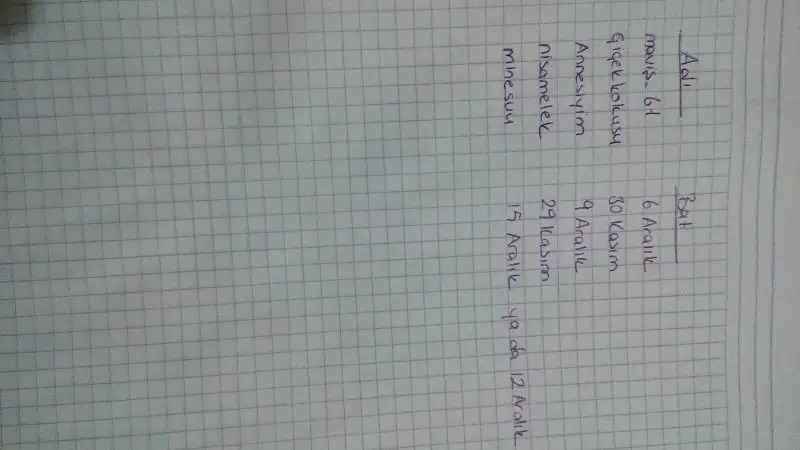 Adı Bat
maviş-61 6 Aralık
Çiçekkokusu 30 Kasım
Annesiyim 9 Aralık
nisamelek 29 Kasım
minesuu 15 Aralık ya da 12 Aralık